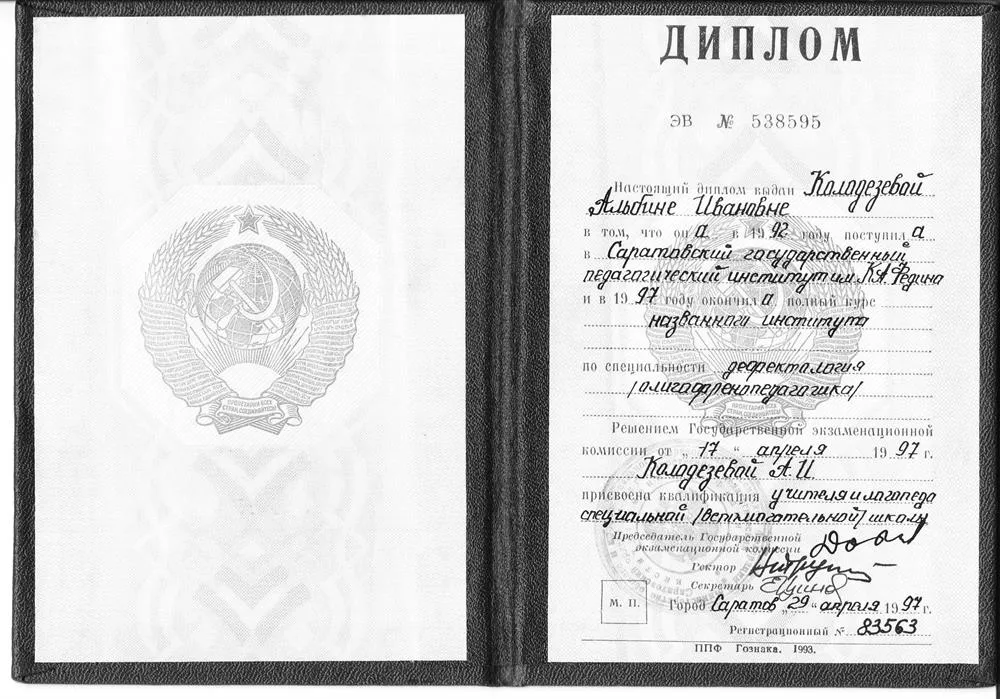 ПРОЛЕТАРИИ ВСЕХ
СТРАН, СОЕДИНЯЙТЕСЬ!
ДИПЛОМ
ЭВ № 538595
Настоящий диплом выдан Колодезевой
Альбине Ивановне
в том, что он а в 19 92 году поступил а
в Саратовский государственный
педагогический институт им. К.А. Федина
и в 19 97 году окончил а полный курс
названного института
по специальности дефектология
/олигофренопедагогика/
Решением Государственной экзаменационной
комиссии от „ 17 “ апреля 19 97 г.
Колодезевой А.И.
присвоена квалификация учителя и логопеда
специальной /вспомогательной/ школы
Председатель Государственной
экзаменационной комиссии
Ректор
Секретарь
М. П. Город Саратов „ 29 “ апреля 19 97 г.
Регистрационный № 83563
ППФ Гознака. 1993.